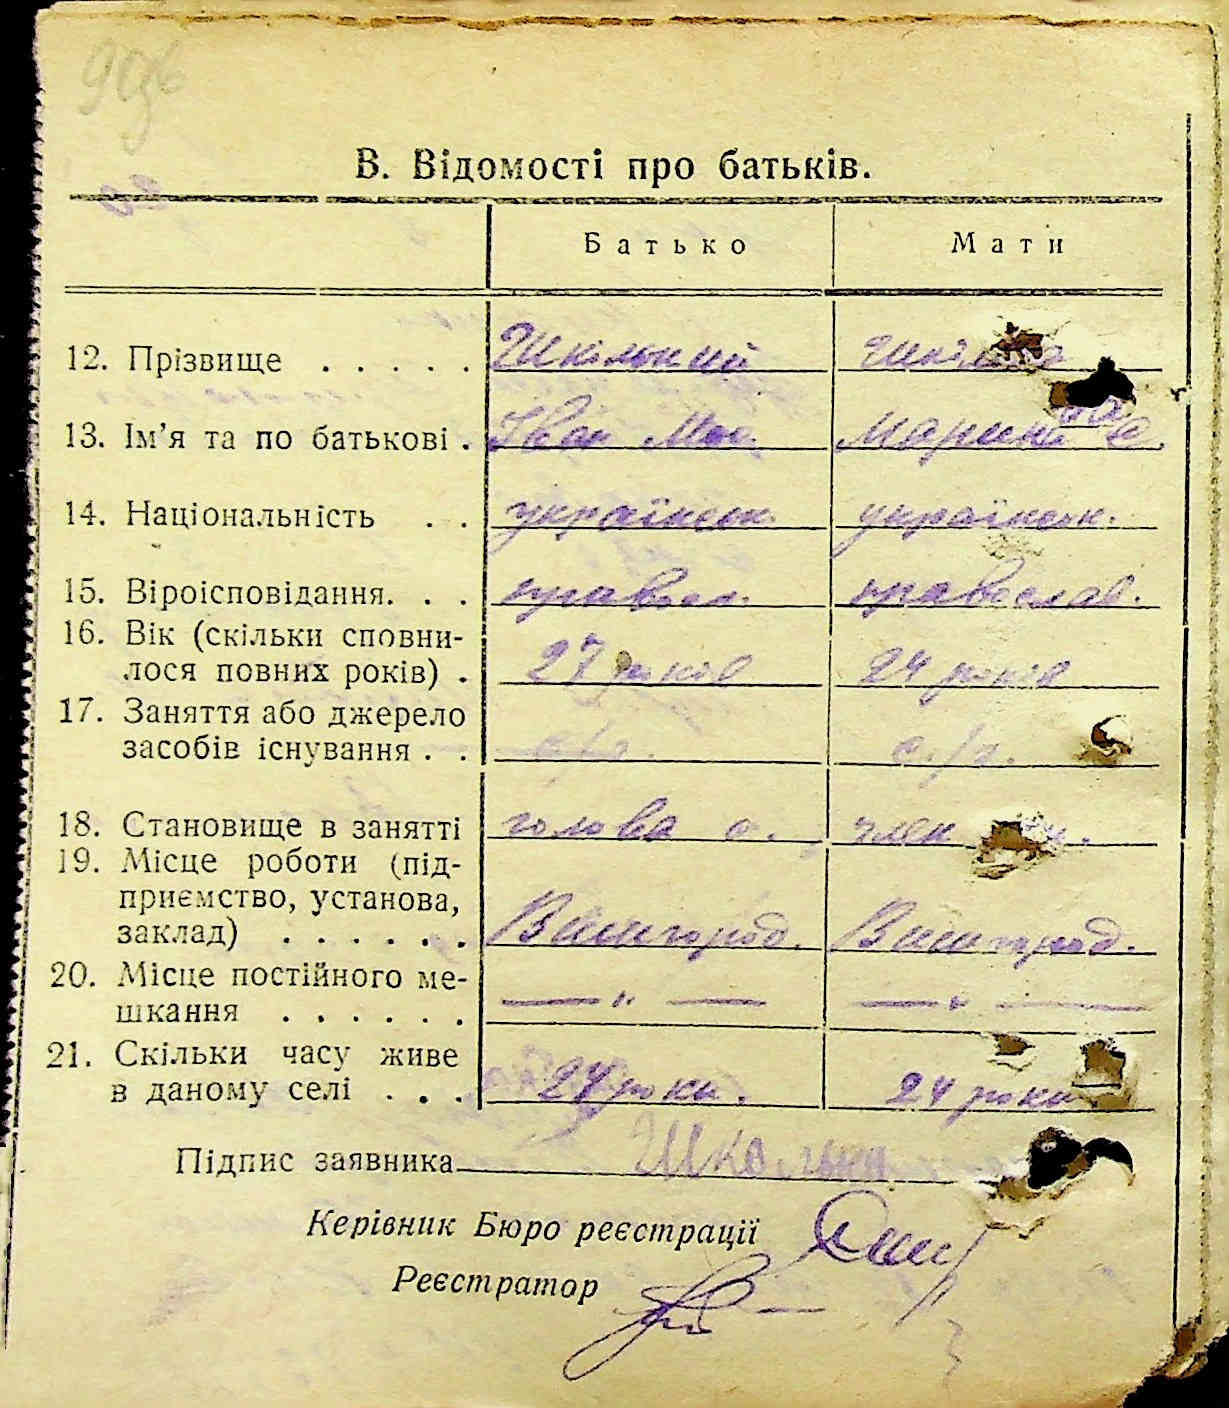 В. Відомості про батьків.
Батько Мати
12. Прізвище . . . . . Шкільний
13. Ім’я та по батькові . Іван Марина
14. Національність . . українськ. українськ.
15. Віроісповідання. . . правосл. православ.
16. Вік (скільки сповни-
лося повних років) . 27 років 24 років
17. Заняття або джерело
засобів існування . . с/г. с./г.
18. Становище в занятті голова с. член
19. Місце роботи (під-
приємство, установа,
заклад) . . . . . . Вишгород. Вишгород.
20. Місце постійного ме-
шкання . . . . . . — „ — — „ —
21. Скільки часу живе
в даному селі . . . 24 роки. 24 роки
Підпис заявника
Керівник Бюро реєстрації
Реєстратор